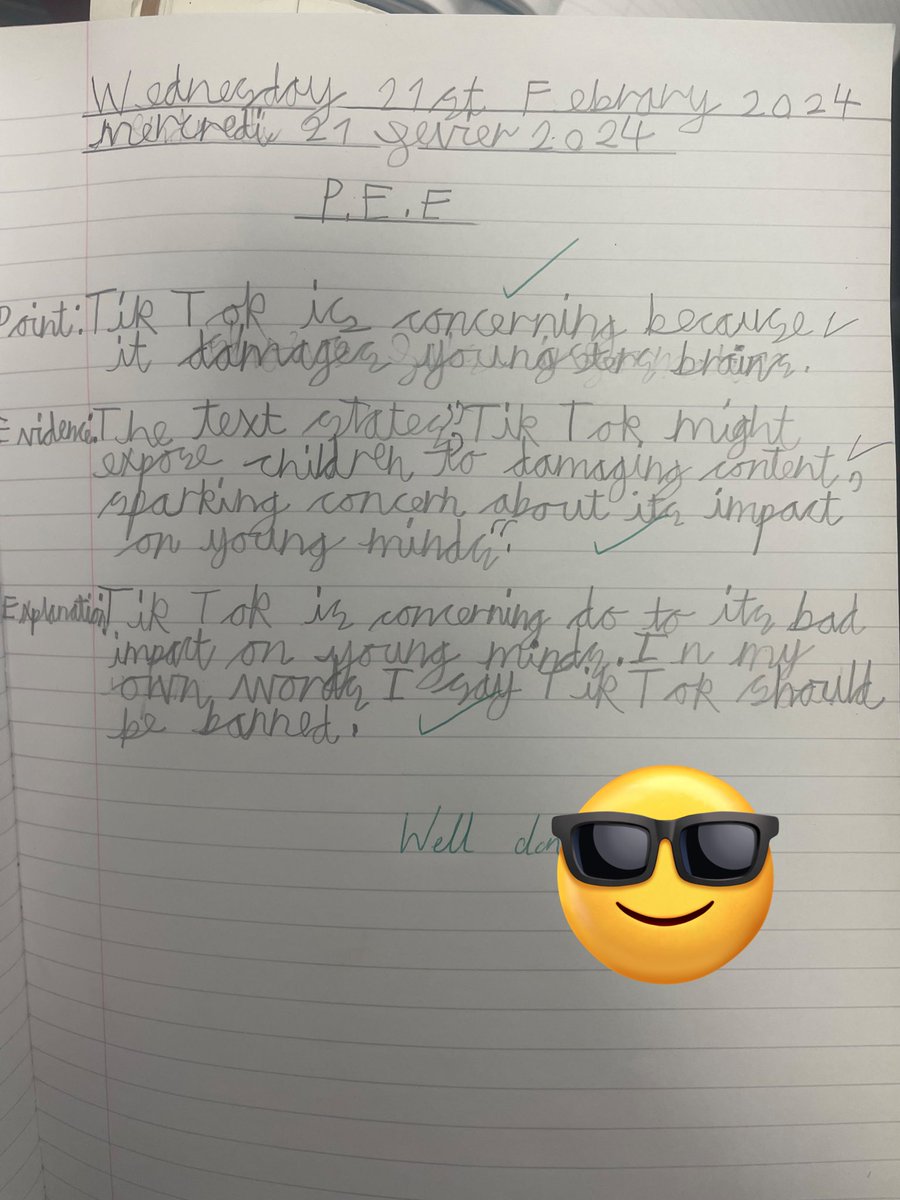 Wednesday 21st Febrary 2024
mercredi 21 gevier 2024
P.E.E
Point: Tik Tok is concerning because
it damages youngsters brains.
Evidence: The text states "Tik Tok might
expose children to damaging content,
sparking concern about its impact
on young minds".
Explanation: Tik Tok is concerning do to its bad
impact on young minds. In my
own words I say Tik Tok should
be banned.
Well